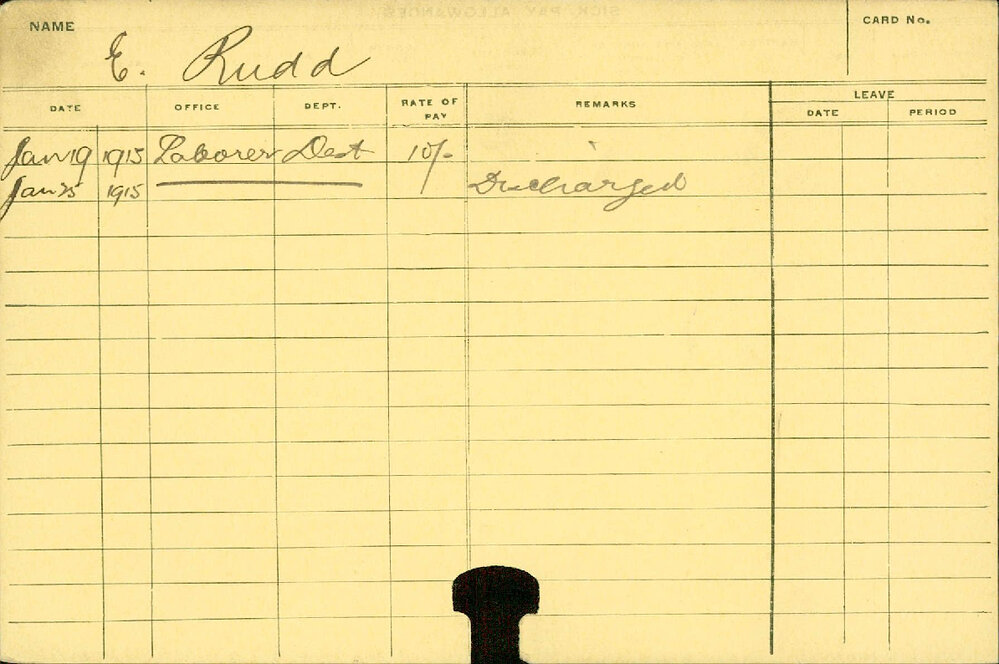 NAME
E. Rudd
CARD No.
DATE OFFICE DEPT. RATE OF PAY REMARKS LEAVE
DATE PERIOD
Jan 19 1915 Laborer Dest 10/-
Jan 25 1915 Discharged